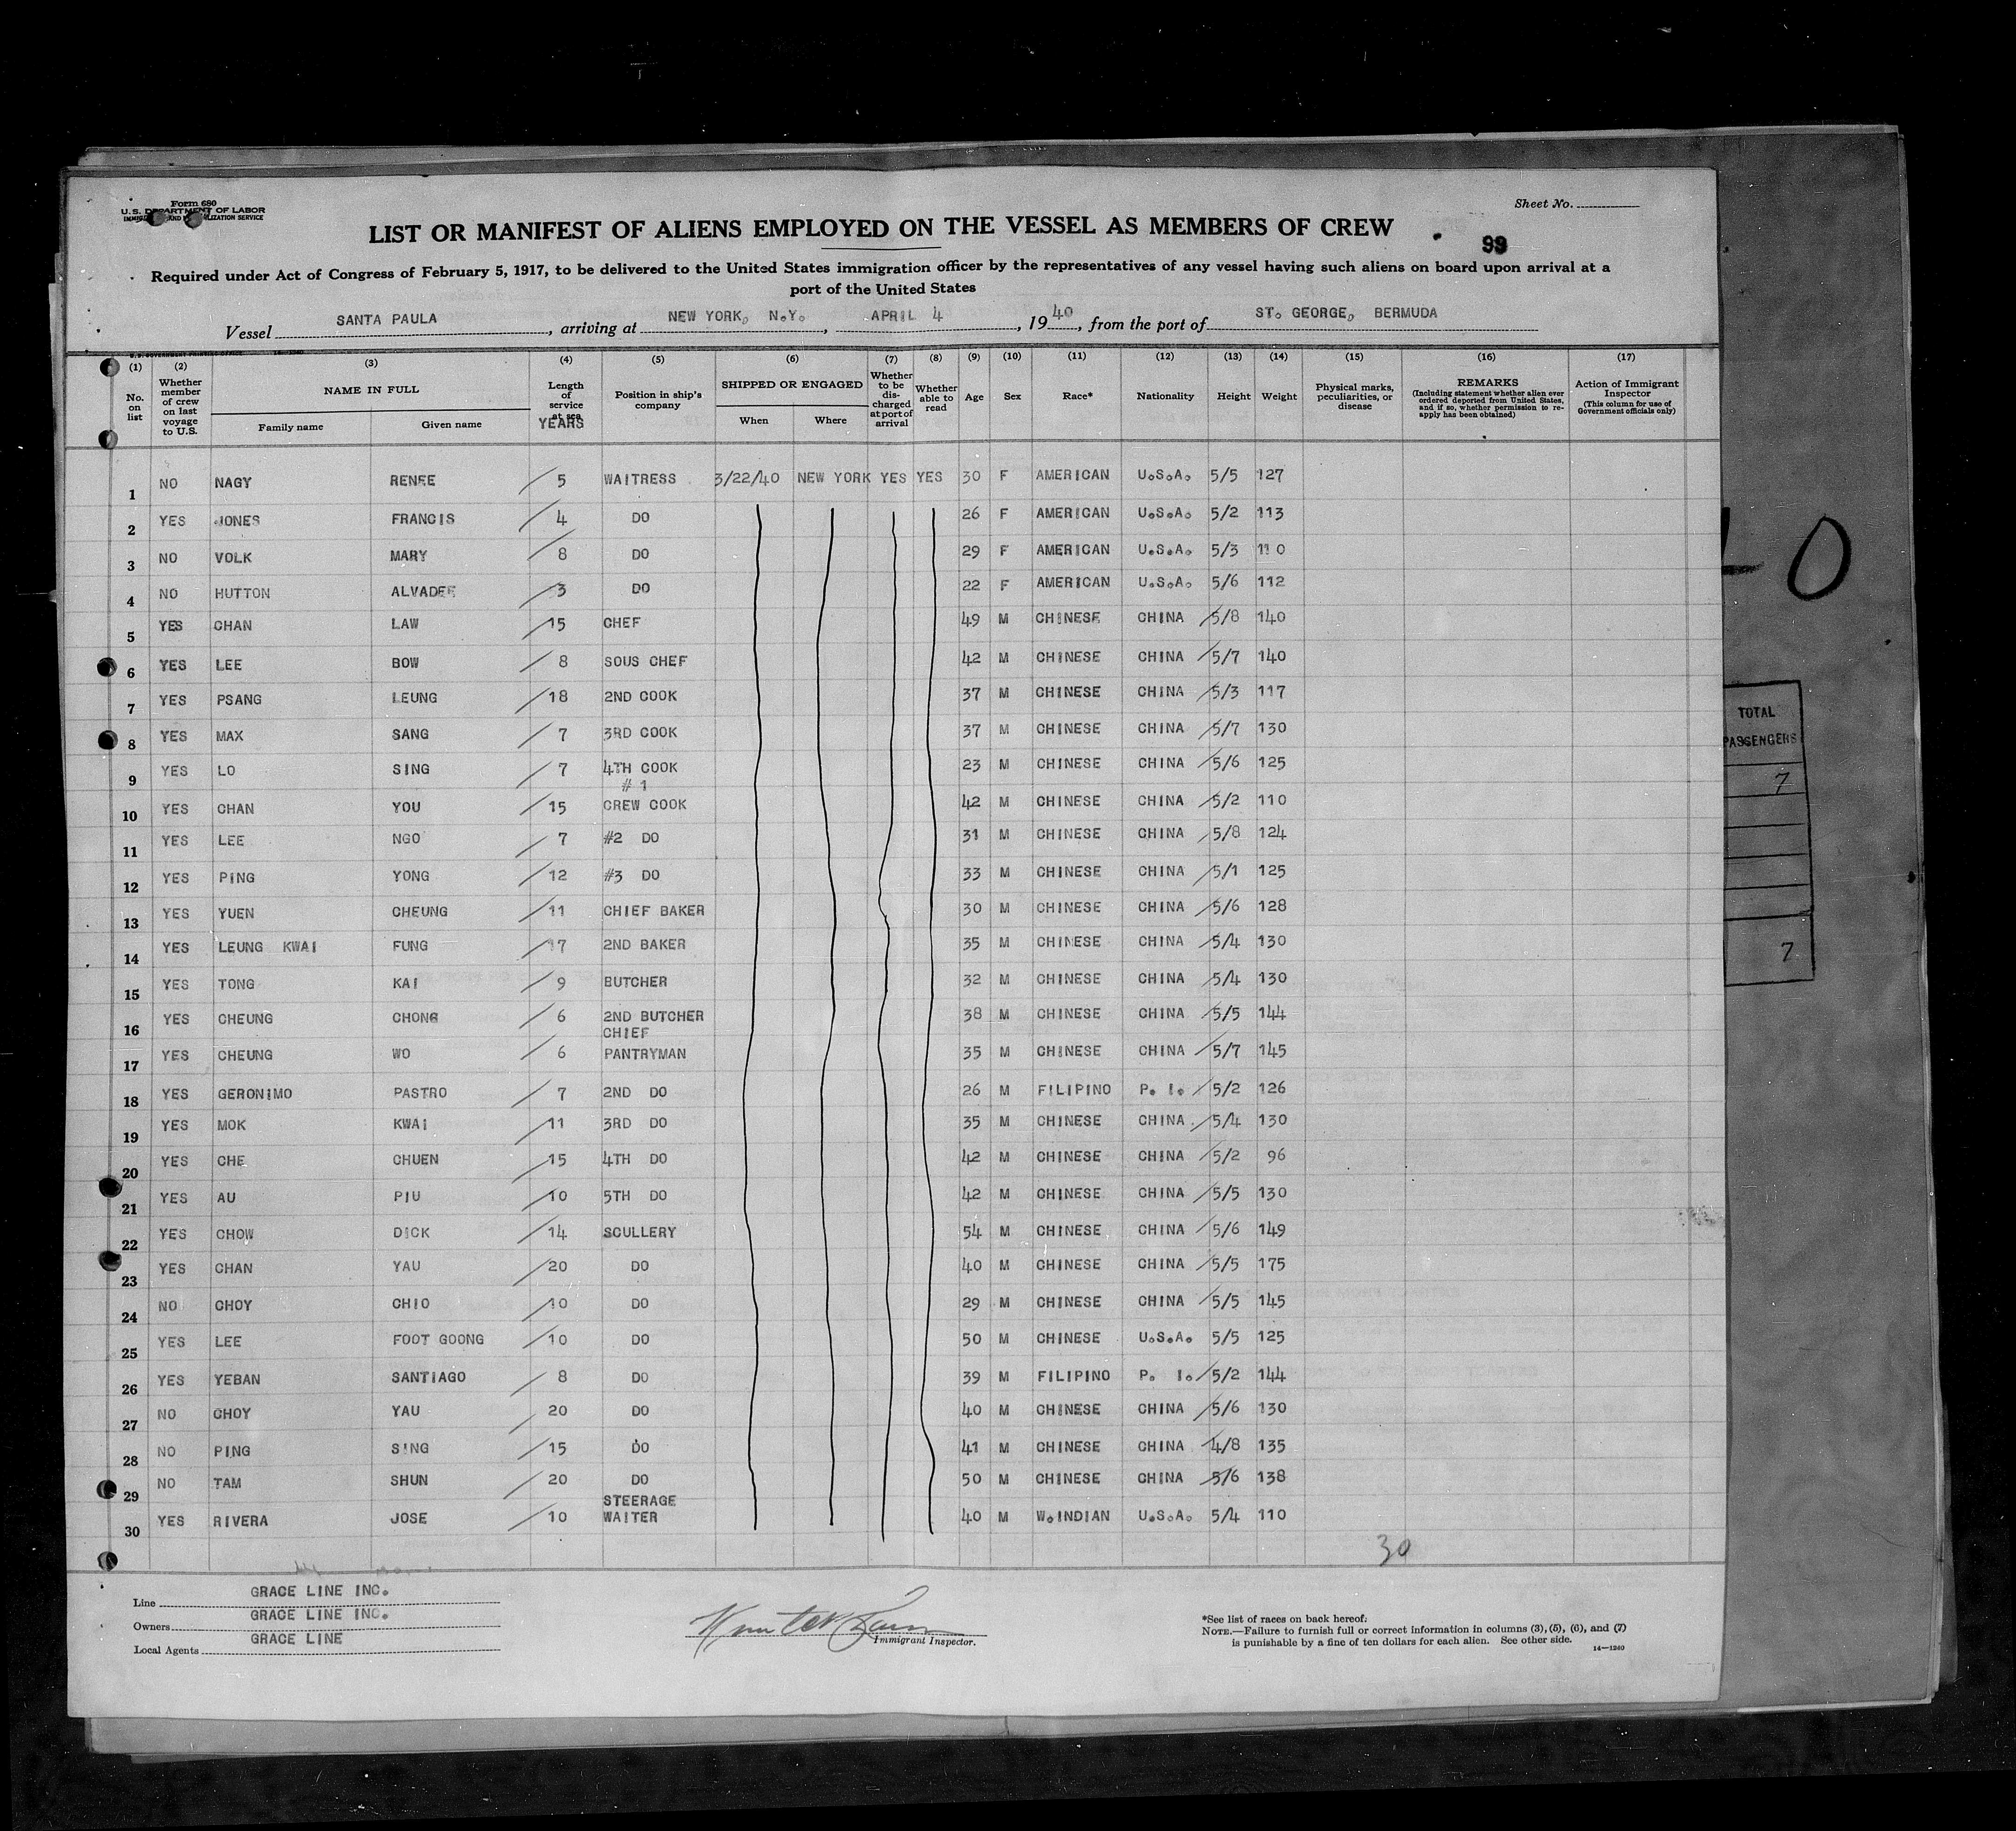 Form 680
U.S. DEPARTMENT OF LABOR
IMMIGRATION AND NATURALIZATION SERVICE
Sheet No.
LIST OR MANIFEST OF ALIENS EMPLOYED ON THE VESSEL AS MEMBERS OF CREW
99
Required under Act of Congress of February 5, 1917, to be delivered to the United States immigration officer by the representatives of any vessel having such aliens on board upon arrival at a
port of the United States
Vessel SANTA PAULA, arriving at NEW YORK, N.Y., APRIL 4, 1940, from the port of ST. GEORGE, BERMUDA
U.S. GOVERNMENT PRINTING OFFICE 14—1240
(1) (2) (3) (4) (5) (6) (7) (8) (9) (10) (11) (12) (13) (14) (15) (16) (17)
No. on list
Whether member of crew on last voyage to U.S.
NAME IN FULL
Family name
Given name
Length of service at sea
YEARS
Position in ship's company
SHIPPED OR ENGAGED
When
Where
Whether to be discharged at port of arrival
Whether able to read
Age
Sex
Race*
Nationality
Height
Weight
Physical marks, peculiarities, or disease
REMARKS
(Including statement whether alien ever ordered deported from United States, and if so, whether permission to reapply has been obtained)
Action of Immigrant Inspector
(This column for use of Government officials only)
1 NO NAGY RENEE 5 WAITRESS 3/22/40 NEW YORK YES YES 30 F AMERICAN U.S.A. 5/5 127
2 YES JONES FRANCIS 4 DO 26 F AMERICAN U.S.A. 5/2 113
3 NO VOLK MARY 8 DO 29 F AMERICAN U.S.A. 5/3 110
4 NO HUTTON ALVADEE 3 DO 22 F AMERICAN U.S.A. 5/6 112
5 YES CHAN LAW 15 CHEF 49 M CHINESE CHINA 5/8 140
6 YES LEE BOW 8 SOUS CHEF 42 M CHINESE CHINA 5/7 140
7 YES PSANG LEUNG 18 2ND COOK 37 M CHINESE CHINA 5/3 117
8 YES MAX SANG 7 3RD COOK 37 M CHINESE CHINA 5/7 130
9 YES LO SING 7 4TH COOK 23 M CHINESE CHINA 5/6 125
10 YES CHAN YOU 15 #1 CREW COOK 42 M CHINESE CHINA 5/2 110
11 YES LEE NGO 7 #2 DO 31 M CHINESE CHINA 5/8 124
12 YES PING YONG 12 #3 DO 33 M CHINESE CHINA 5/1 125
13 YES YUEN CHEUNG 11 CHIEF BAKER 30 M CHINESE CHINA 5/6 128
14 YES LEUNG KWAI FUNG 17 2ND BAKER 35 M CHINESE CHINA 5/4 130
15 YES TONG KAI 9 BUTCHER 32 M CHINESE CHINA 5/4 130
16 YES CHEUNG CHONG 6 2ND BUTCHER 38 M CHINESE CHINA 5/5 144
17 YES CHEUNG WO 6 CHIEF PANTRYMAN 35 M CHINESE CHINA 5/7 145
18 YES GERONIMO PASTRO 7 2ND DO 26 M FILIPINO P. I. 5/2 126
19 YES MOK KWAI 11 3RD DO 35 M CHINESE CHINA 5/4 130
20 YES CHE CHUEN 15 4TH DO 42 M CHINESE CHINA 5/2 96
21 YES AU PIU 10 5TH DO 42 M CHINESE CHINA 5/5 130
22 YES CHOW DICK 14 SCULLERY 54 M CHINESE CHINA 5/6 149
23 YES CHAN YAU 20 DO 40 M CHINESE CHINA 5/5 175
24 NO CHOY CHIO 10 DO 29 M CHINESE CHINA 5/5 145
25 YES LEE FOOT GOONG 10 DO 50 M CHINESE U.S.A. 5/5 125
26 YES YEBAN SANTIAGO 8 DO 39 M FILIPINO P. I. 5/2 144
27 NO CHOY YAU 20 DO 40 M CHINESE CHINA 5/6 130
28 NO PING SING 15 DO 41 M CHINESE CHINA 4/8 135
29 NO TAM SHUN 20 DO 50 M CHINESE CHINA 5/6 138
30 YES RIVERA JOSE 10 STEERAGE WAITER 40 M W.INDIAN U.S.A. 5/4 110
30
Line GRACE LINE INC.
Owners GRACE LINE INC.
Local Agents GRACE LINE
Immigrant Inspector.
*See list of races on back hereof.
NOTE.—Failure to furnish full or correct information in columns (3), (5), (6), and (7)
is punishable by a fine of ten dollars for each alien. See other side.
14—1240
0
TOTAL
PASSENGERS
7
7